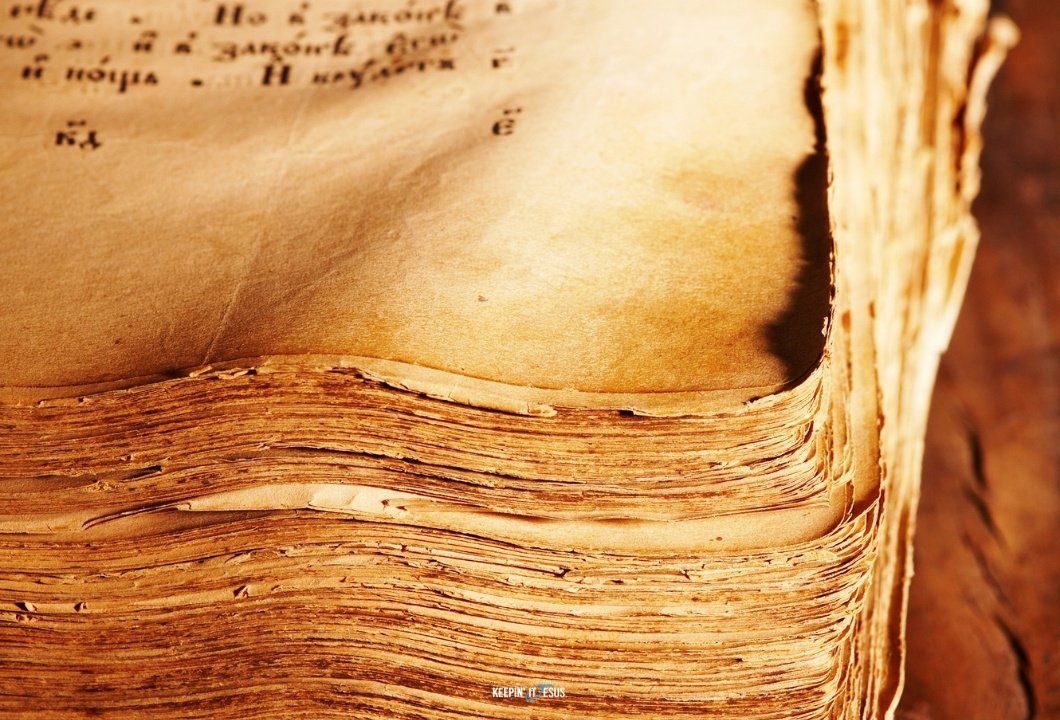 Но в̾ зако́нѣ
и҆ в̾ зако́нѣ є҆гѡ̀
и҆ но́щь . И҆ бꙋ́детъ г҃
к҃д
KEEPIN' IT JESUS